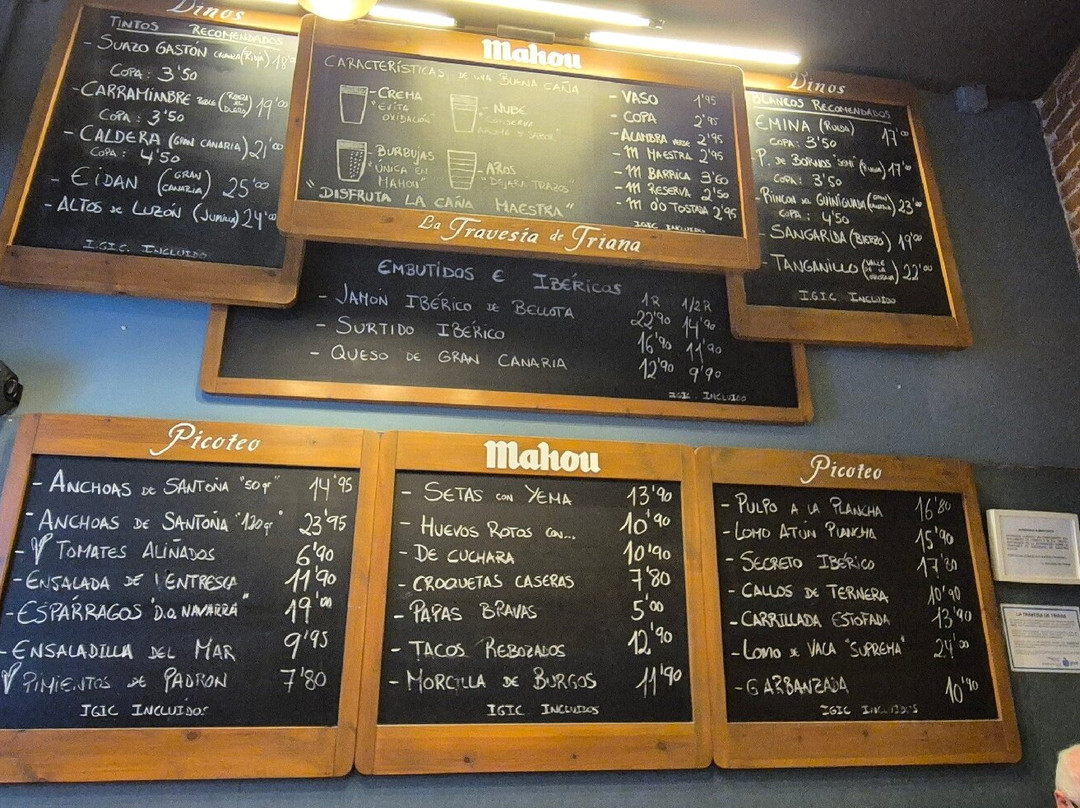 Vinos
TINTOS RECOMENDADOS
- SUAZO GASTÓN CRIANZA (RIOJA) 18'
COPA: 3'50
- CARRAMIMBRE ROBLE (RIBERA DEL DUERO) 19'00
COPA: 3'50
- CALDERA (GRAN CANARIA) 21'00
COPA: 4'50
- EIDAN (GRAN CANARIA) 25'00
- ALTOS DE LUZÓN (JUMILLA) 24'00
IGIC INCLUIDO
Mahou
CARACTERÍSTICAS DE UNA BUENA CAÑA
- CREMA
"EVITA OXIDACIÓN"
- NUBE
"CONSERVA AROMA Y SABOR"
BURBUJAS
"ÚNICA EN MAHOU"
- AROS
"DEJARÁ TRAZOS"
"DISFRUTA LA CAÑA MAESTRA"
- VASO 1'95
- COPA 2'95
- ALHAMBRA VERDE 2'95
- M MAESTRA 2'95
- M BARRICA 3'60
- M RESERVA 2'50
- M 0'0 TOSTADA 2'95
IGIC INCLUIDO
La Travesía de Triana
Vinos
BLANCOS RECOMENDADOS
EMINA (RUEDA) 17'00
COPA: 3'50
- P. DE BORNOS SEMI (RUEDA) 17'00
COPA: 3'50
RINCÓN DEL GUINIGUADA (GRAN CANARIA) 23'00
COPA: 4'50
- SANGARIDA (BIERZO) 19'00
- TANGANILLO (VALLE DE LA OROTAVA) 22'00
IGIC INCLUIDO
EMBUTIDOS E IBÉRICOS
1R 1/2R
- JAMÓN IBÉRICO DE BELLOTA 22'90 14'90
- SURTIDO IBÉRICO 16'90 11'90
- QUESO DE GRAN CANARIA 12'90 9'90
IGIC INCLUIDO
Picoteo
- ANCHOAS DE SANTOÑA "50gr" 14'95
- ANCHOAS DE SANTOÑA "120gr" 23'95
- TOMATES ALIÑADOS 6'90
- ENSALADA DE VENTRESCA 11'90
- ESPÁRRAGOS "D.O. NAVARRA" 19'00
- ENSALADILLA DEL MAR 9'95
PIMIENTOS DE PADRÓN 7'80
IGIC INCLUIDOS
Mahou
- SETAS CON YEMA 13'90
- HUEVOS ROTOS CON... 10'90
- DE CUCHARA 10'90
- CROQUETAS CASERAS 7'80
- PAPAS BRAVAS 5'00
- TACOS REBOZADOS 12'90
- MORCILLA DE BURGOS 11'90
IGIC INCLUIDOS
Picoteo
- PULPO A LA PLANCHA 16'80
- LOMO ATÚN PLANCHA 15'90
- SECRETO IBÉRICO 17'80
- CALLOS DE TERNERA 10'90
- CARRILLADA ESTOFADA 13'90
- LOMO DE VACA "SUPREMA" 24'00
- GARBANZADA 10'90
IGIC INCLUIDOS
LA TRAVESÍA DE TRIANA